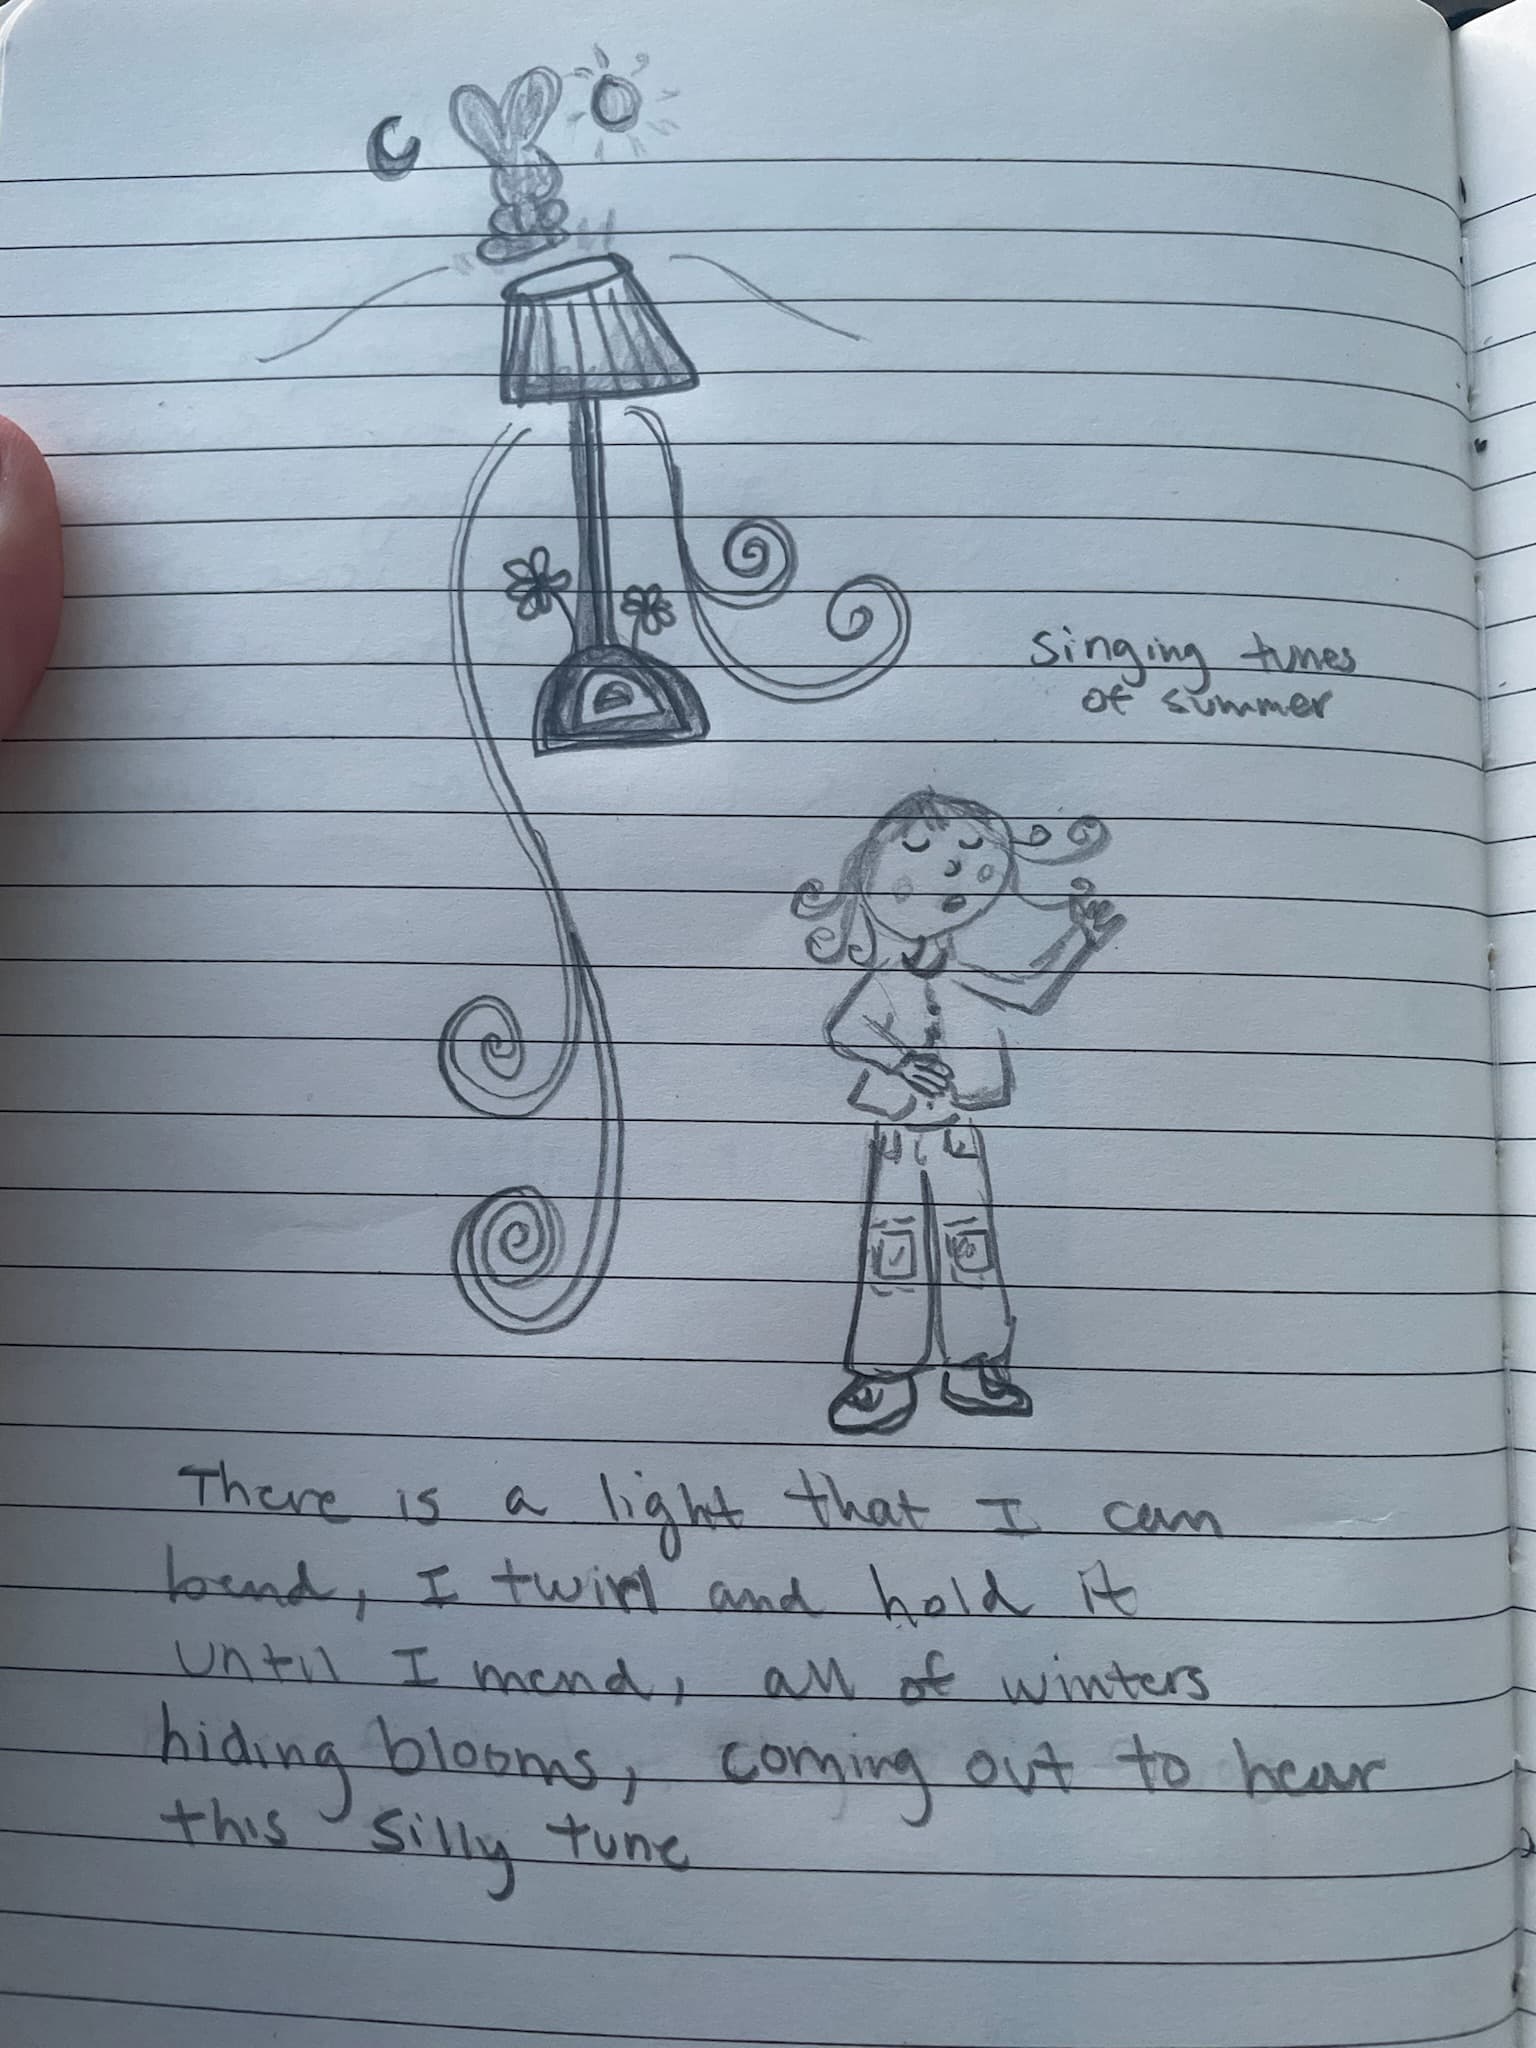 singing tunes
of summer
There is a light that I can
bend, I twirl and hold it
until I mend, all of winters
hiding blooms, coming out to hear
this silly tune